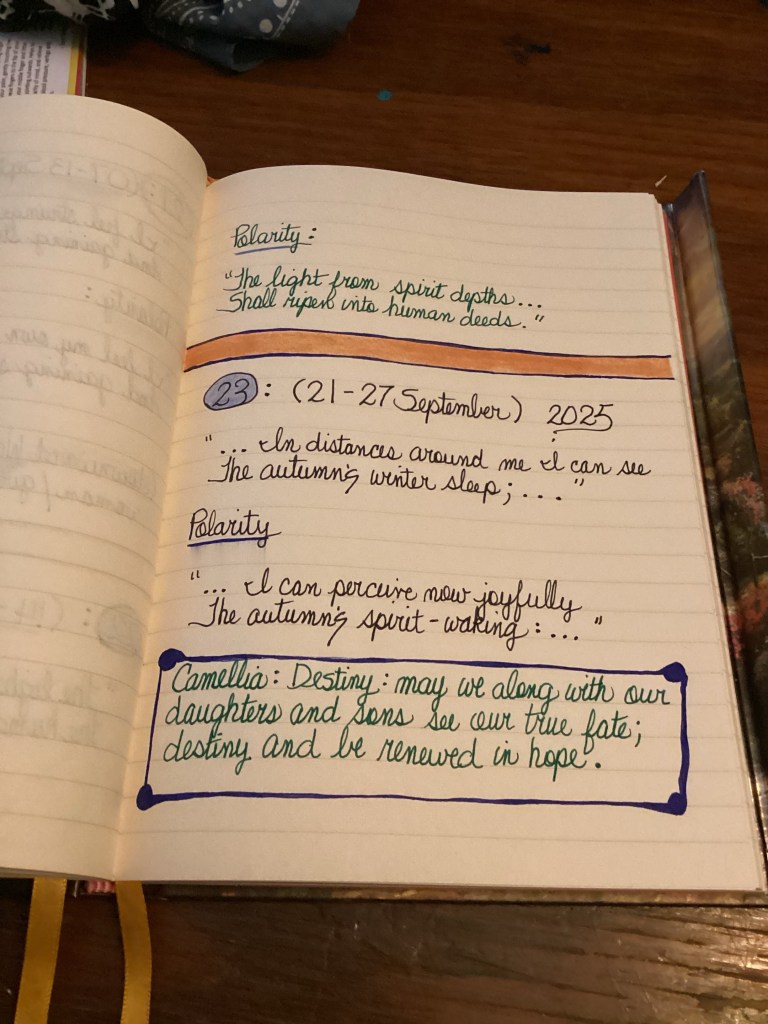 Polarity:
"The light from spirit depths...
Shall ripen into human deeds."
23: (21-27 September) 2025
"... In distances around me I can see
The autumn's winter sleep; ... "
Polarity
"... I can perceive now joyfully
The autumn's spirit-waking: ... "
Camellia: Destiny: may we along with our
daughters and sons see our true fate;
destiny and be renewed in hope.